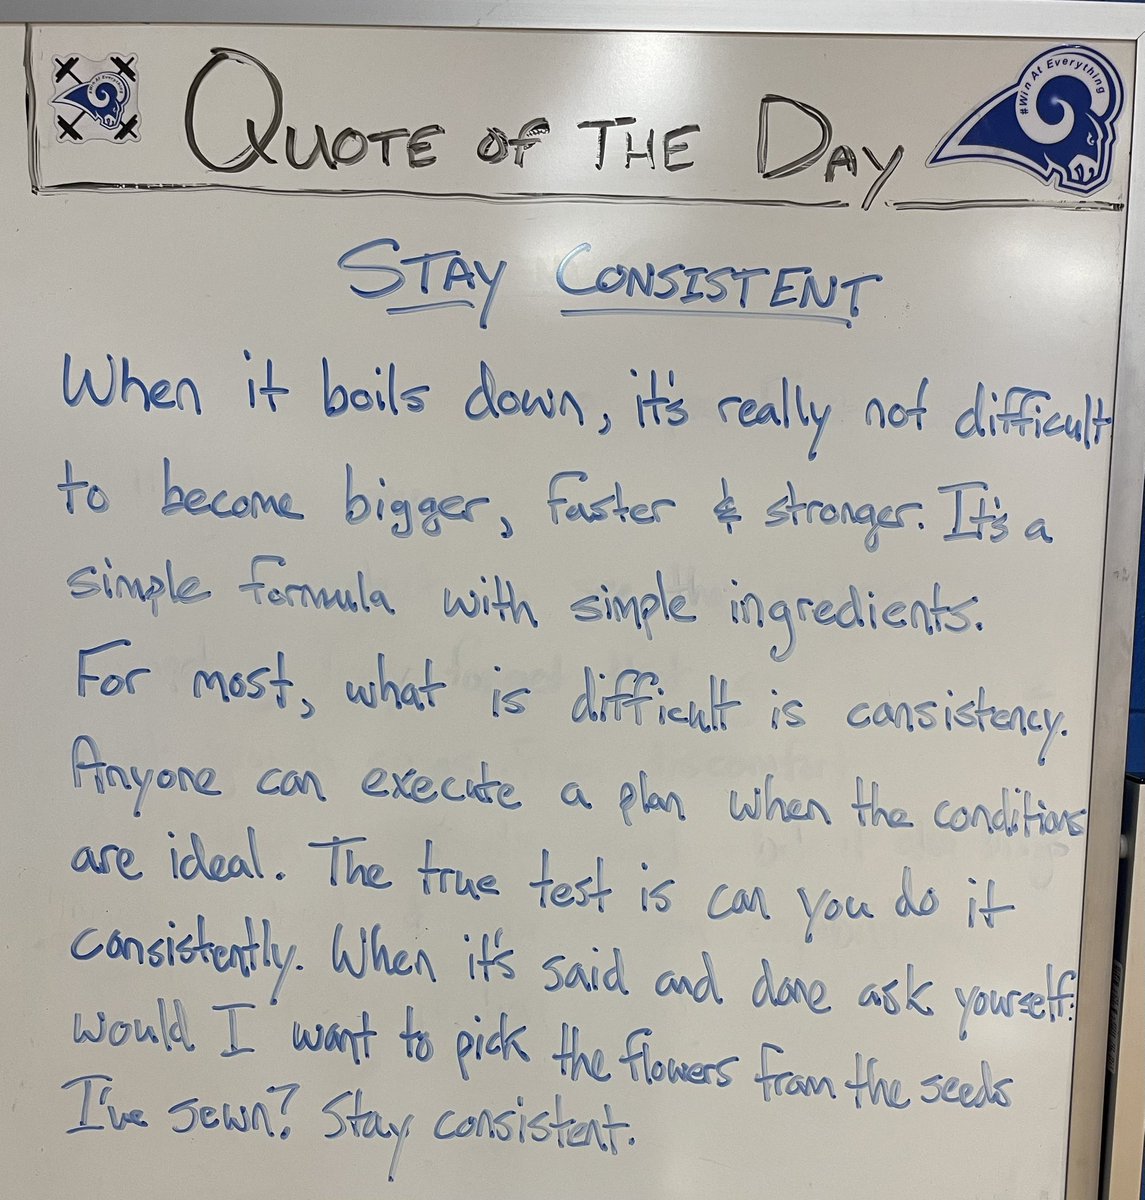 QUOTE OF THE DAY
#Win At Everything
#Win At Everything
STAY CONSISTENT
When it boils down, it's really not difficult
to become bigger, faster & stronger. It's a
simple formula with simple ingredients.
For most, what is difficult is consistency.
Anyone can execute a plan when the conditions
are ideal. The true test is can you do it
consistently. When it's said and done ask yourself:
would I want to pick the flowers from the seeds
I've sewn? Stay consistent.